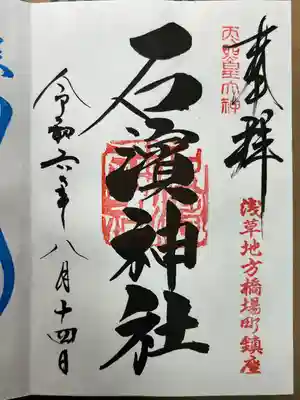 奉拝
天照皇大神
浅草地方橋場町鎮座
石濱神社
令和六年八月十四日